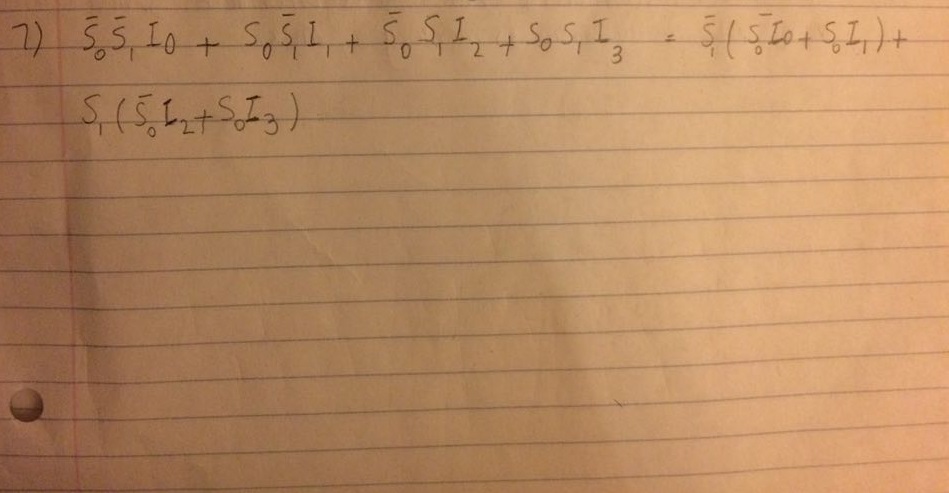 7) S̄₀S̄₁I₀ + S₀S̄₁I₁ + S̄₀S₁I₂ + S₀S₁I₃ = S̄₁(S̄₀I₀ + S₀I₁) +
S₁(S̄₀I₂ + S₀I₃)